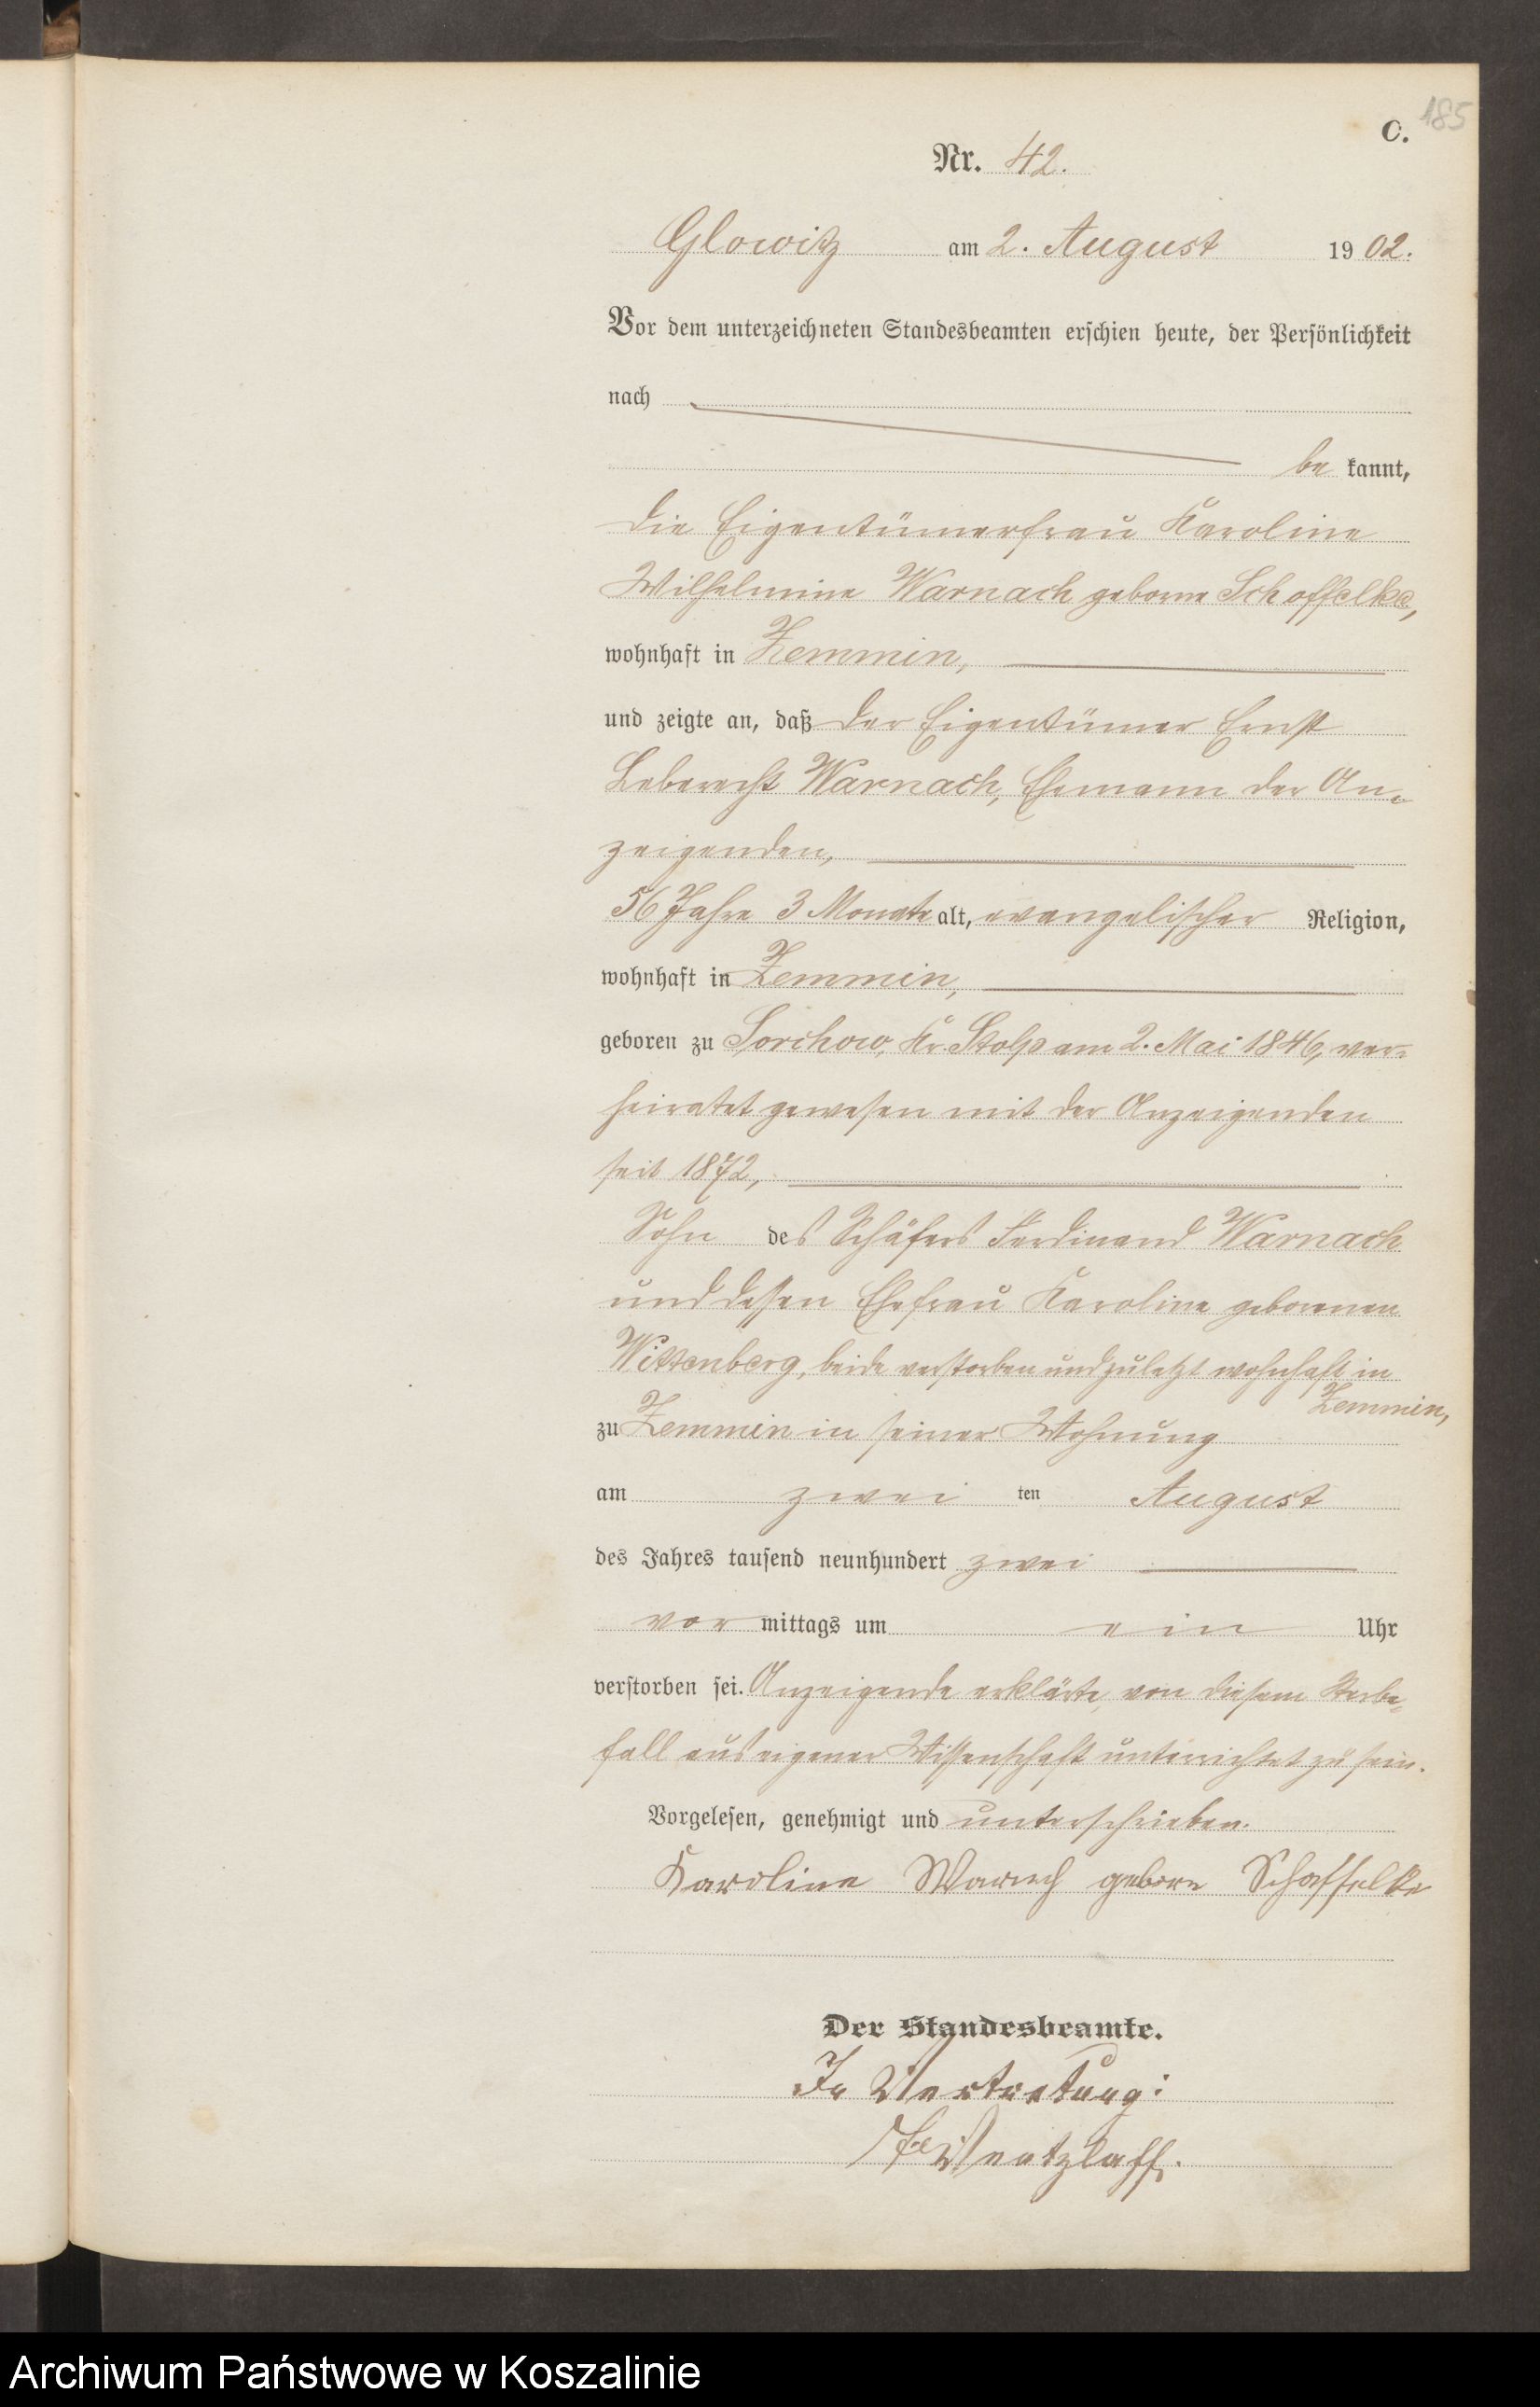 185
C.
Nr. 42.
Glowitz am 2. August 1902.
Vor dem unterzeichneten Standesbeamten erschien heute, der Persönlichkeit
nach
be kannt,
die Eigentümerfrau Karoline
Wilhelmine Warnach geborne Schoffelke,
wohnhaft in Zemmin,
und zeigte an, daß der Eigentümer Ernst
Leberecht Warnach, Ehemann der An-
zeigenden,
56 Jahre 3 Monate alt, evangelischer Religion,
wohnhaft in Zemmin,
geboren zu Sorchow, Kr. Stolp am 2. Mai 1846, ver-
heiratet gewesen mit der Anzeigenden
seit 1872,
Sohn des Schäfers Ferdinand Warnach
und dessen Ehefrau Karoline geborenen
Wittenberg, beide verstorben und zuletzt wohnhaft in
Zemmin,
zu Zemmin in seiner Wohnung
am zwei ten August
des Jahres tausend neunhundert zwei
vor mittags um ein Uhr
verstorben sei. Anzeigende erklärte, von diesem Sterbe-
fall aus eigener Wissenschaft unterrichtet zu sein.
Vorgelesen, genehmigt und unterschrieben.
Karoline geborn Schaffelke
Der Standesbeamte.
In Vertretung:
Archiwum Państwowe w Koszalinie